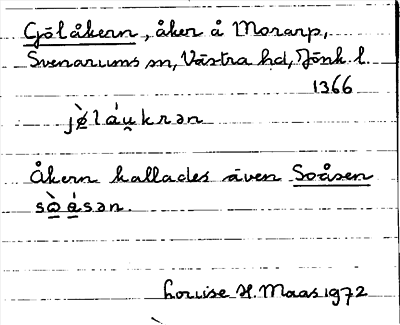 Gölåkern, åker å Morarp,
Svenarums sn, Västra hd, Jönk. l.
1366
jø̀láu̯krən
Åkern kallades även Soåsen
sò̱á̱sən.
Louise H. Maas 1972